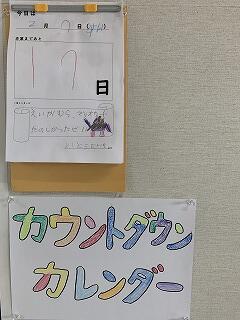 今日は
2月7日(
卒業まであと
17
日
えいがむら、
たのしかったぜ!
カウントダウン
カレンダー